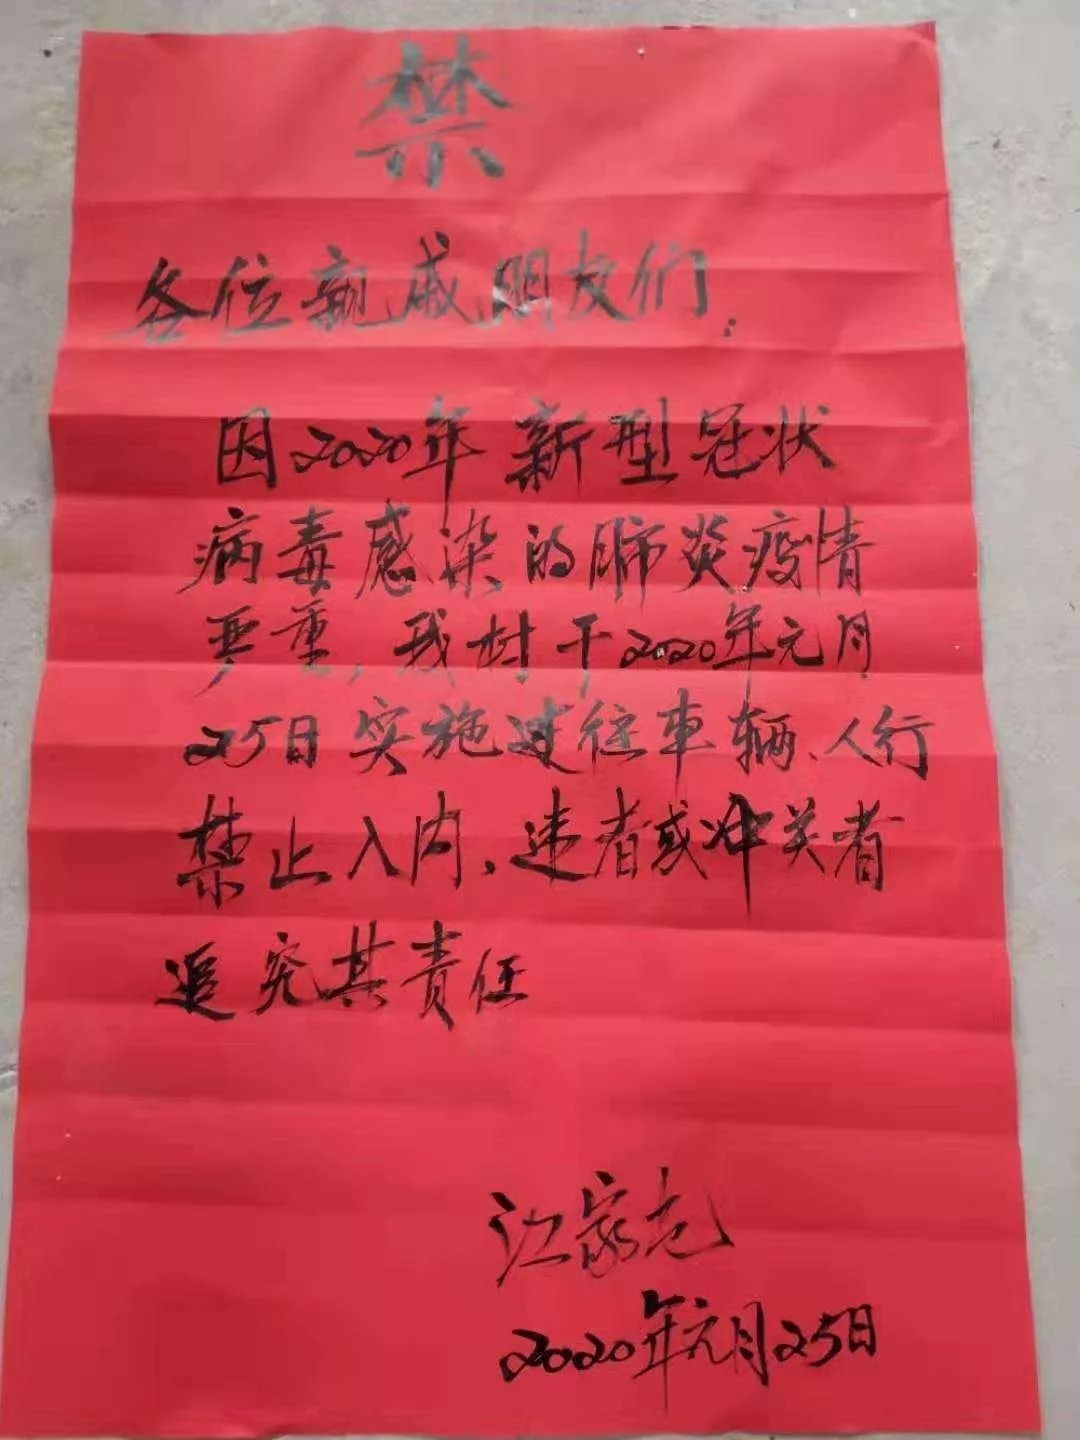 禁
各位亲戚朋友们：
因2020年新型冠状
病毒感染的肺炎疫情
严重，我村于2020年元月
25日实施过往车辆、人行
禁止入内、违者或冲关者
追究其责任
江家
2020年元月25日